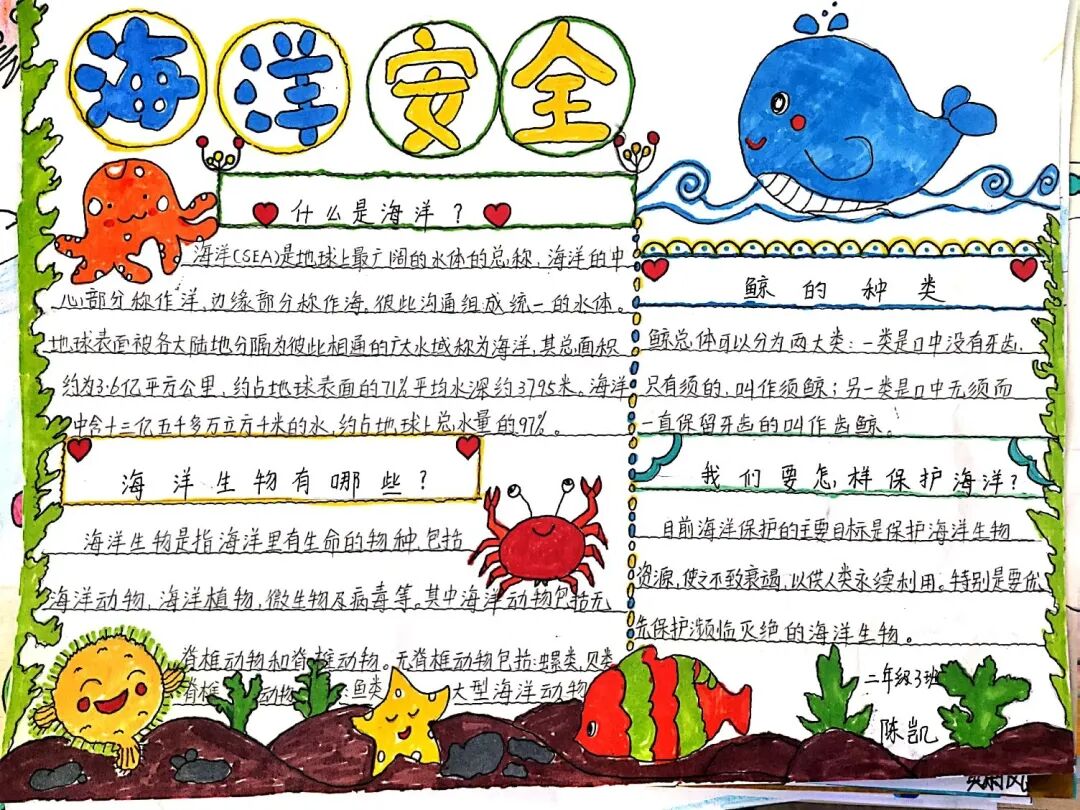 海洋安全
什么是海洋？
海洋(SEA)是地球上最广阔的水体的总称，海洋的中
心部分称作洋，边缘部分称作海，彼此沟通组成统一的水体。
地球表面被各大陆地分隔为彼此相通的广大水域称为海洋，其总面积
约为3.6亿平方公里，约占地球表面的71%平均水深约3795米。海洋
中含十三亿五千多万立方千米的水，约占地球上总水量的97%。
海洋生物有哪些？
海洋生物是指海洋里有生命的物种，包括
海洋动物，海洋植物，微生物及病毒等。其中海洋动物包括无
脊椎动物和脊椎动物。无脊椎动物包括：螺类、贝类
脊椎动物 鱼类 大型海洋动物
鲸的种类
鲸总体可以分为两大类：一类是口中没有牙齿，
只有须的，叫作须鲸；另一类是口中无须而
一直保留牙齿的叫作齿鲸。
我们要怎样保护海洋？
目前海洋保护的主要目标是保护海洋生物
资源，使之不致衰竭，以供人类永续利用。特别是要优
先保护濒临灭绝的海洋生物。
二年级3班
陈凯